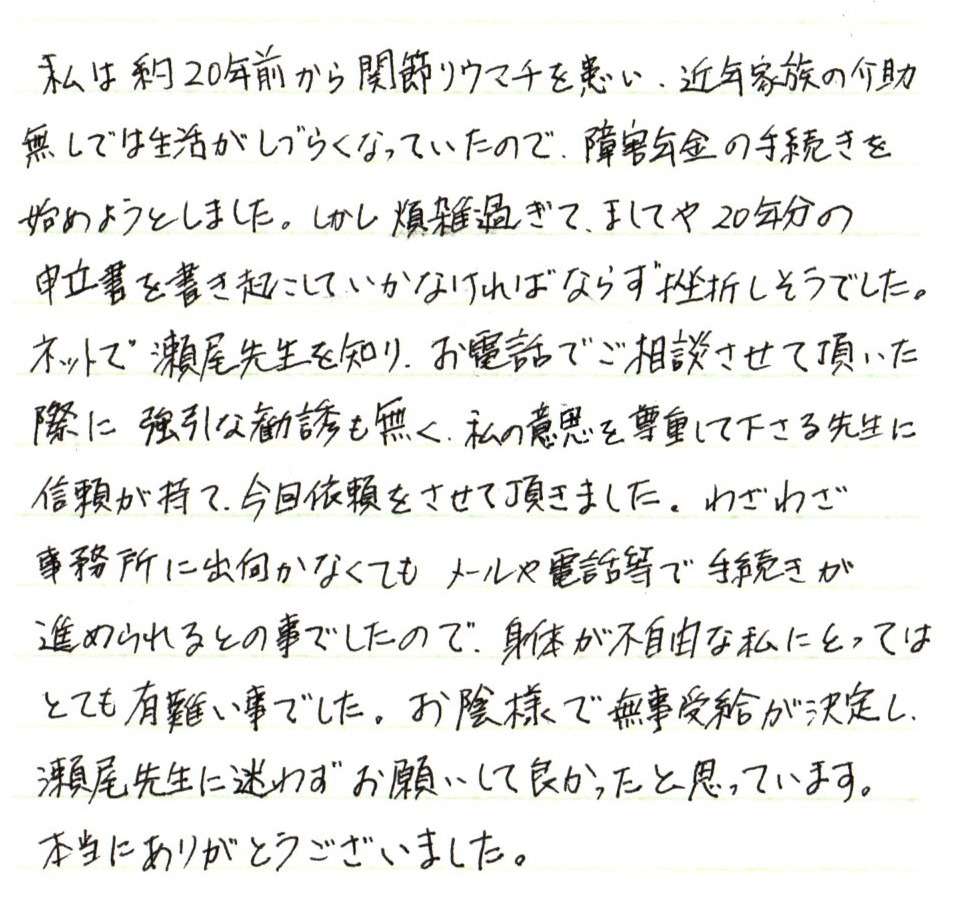 私は約20年前から関節リウマチを患い、近年家族の介助
無しでは生活がしづらくなっていたので、障害年金の手続きを
始めようとしました。しかし煩雑過ぎて、ましてや20年分の
申立書を書き起こしていかなければならず挫折しそうでした。
ネットで瀬尾先生を知り、お電話でご相談させて頂いた
際に強引な勧誘も無く、私の意思を尊重して下さる先生に
信頼が持て、今回依頼をさせて頂きました。わざわざ
事務所に出向かなくてもメールや電話等で手続きが
進められるとの事でしたので、身体が不自由な私にとっては
とても有難い事でした。お陰様で無事受給が決定し、
瀬尾先生に迷わずお願いして良かったと思っています。
本当にありがとうございました。